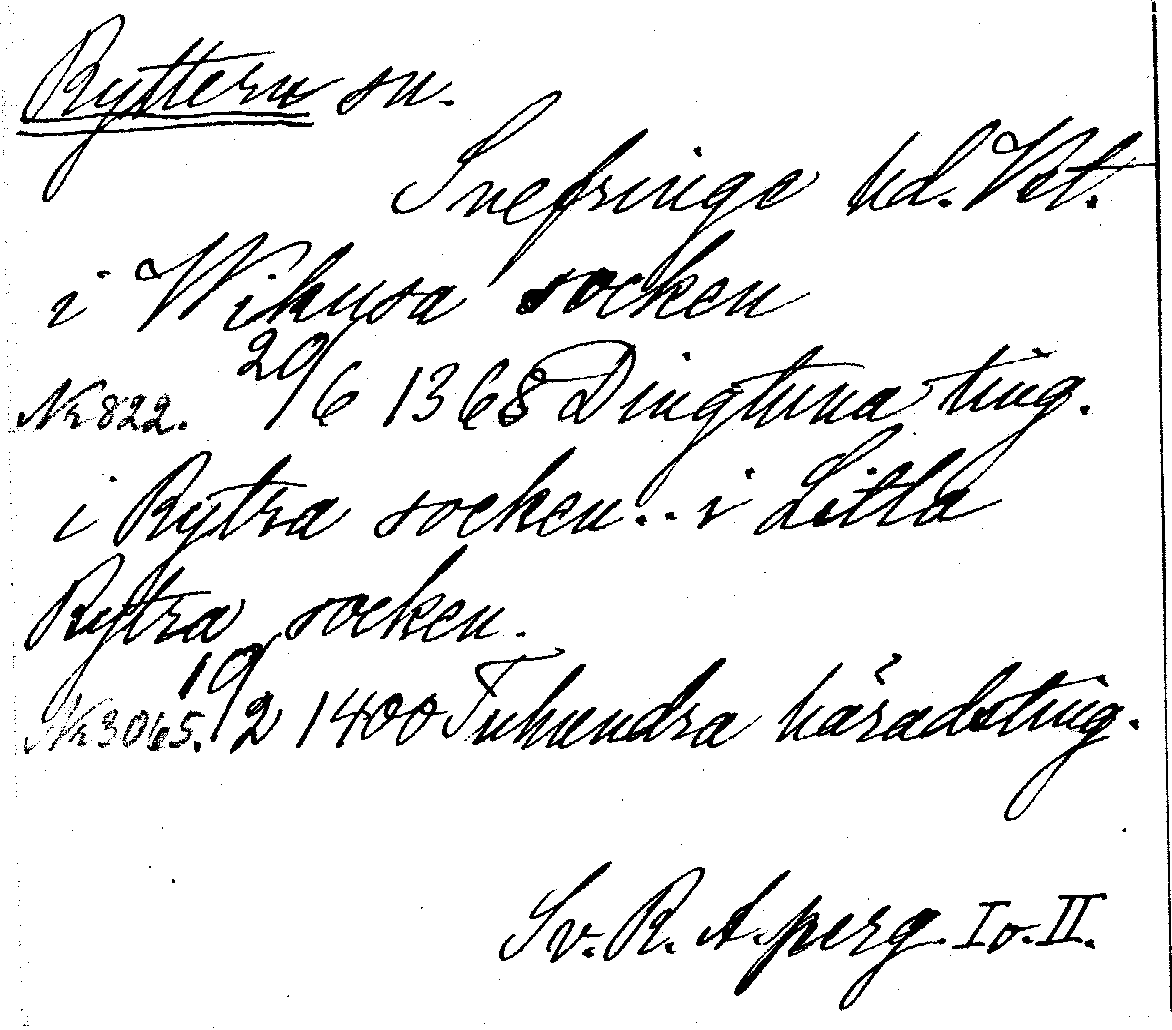 Ryttern sn.
Snefringe hd. Vstl.
i Wikusa socken
Nr 822. 20/6 1368 Dingtuna ting.
i Rytra socken.. i Litla
Rytra socken.
Nr 3065. 19/2 1400 Tuhundra häradsting.
Sv. R. A. perg. I o. II.